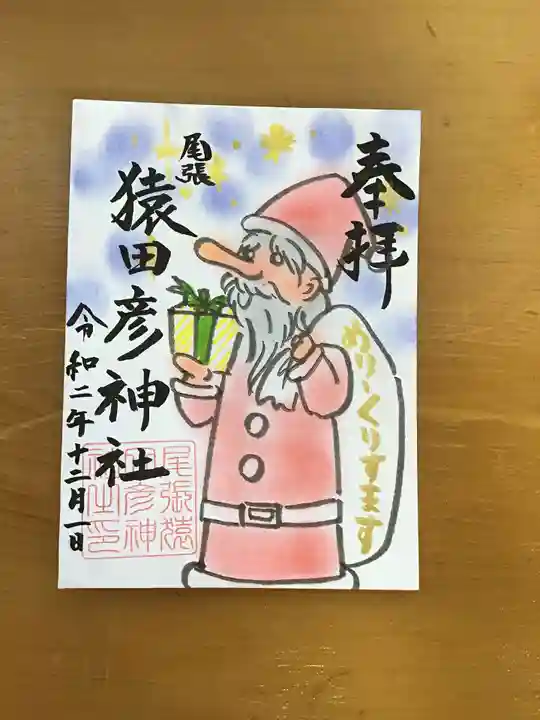 奉拝
めりーくりすます
尾張
猿田彦神社
令和二年十二月一日
尾張猿
田彦神
社之印